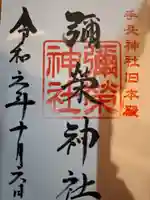 手矢神社旧本殿
彌榮神社
彌榮神社
令和六年十月六日